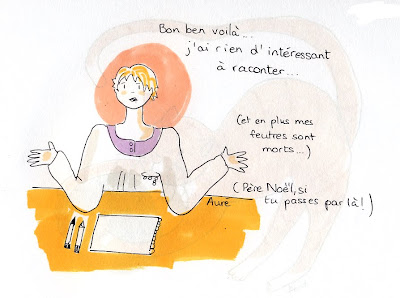 Bon ben voilà...
j'ai rien d'intéressant
à raconter...
(et en plus mes
feutres sont
morts...)
(Père Noël, si
tu passes par là!)
Auré